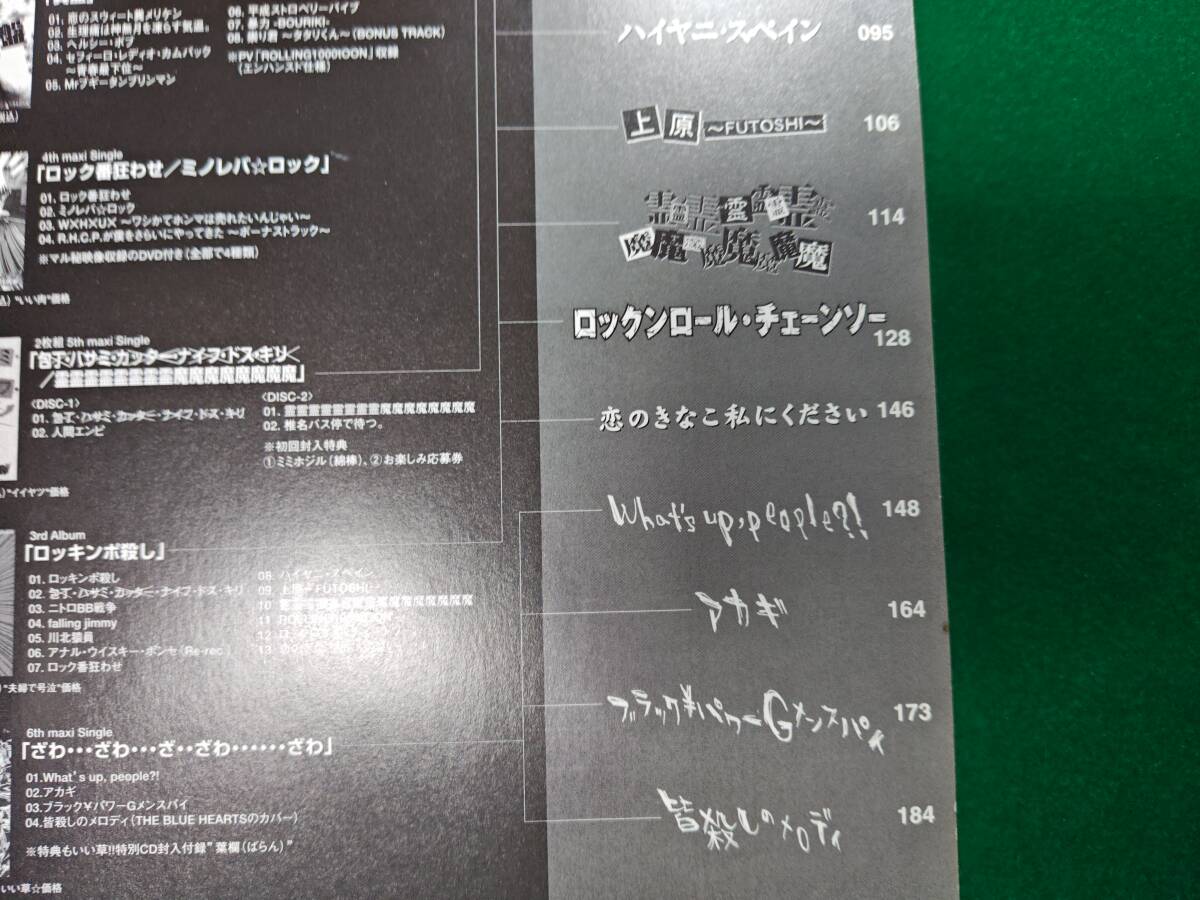 01. 恋のスウィート糞メリケン
02. 生理痛は神無月を凍らす気温。
03. ヘルシー・ボブ
04. セフィーロ・レディオ・カムバック
～青春最下位～
05. Mrブギータンブリンマン
06. 平成ストロベリーパイプ
07. 暴力 -BOURIKI-
08. 乗り君 ～ダクリくん～(BONUS TRACK)
※PV「ROLLING1000tOON」収録
(エンハンスド仕様)
4th maxi Single
「ロック番狂わせ/ミノレバ☆ロック」
01. ロック番狂わせ
02. ミノレバ☆ロック
03. W×H×U× ～ワシかてホンマは売れたいんじゃい～
04. R.H.C.P.が僕をさらいにやってきた ～ボーナストラック～
※マル秘映像収録のDVD付き(全部で4種類)
"いい肉"価格
2枚組 5th maxi Single
「包丁・ハサミ・カッター・ナイフ・ドス・キリ
/霊霊霊霊霊霊霊霊魔魔魔魔魔魔魔魔」
〈DISC-1〉
01. 包丁・ハサミ・カッター・ナイフ・ドス・キリ
02. 人間エンピ
〈DISC-2〉
01. 霊霊霊霊霊霊霊霊魔魔魔魔魔魔魔魔
02. 椎名バス停で待つ。
※初回封入特典
①ミミホジル(綿棒)、②お楽しみ応募券
"イイヤツ"価格
3rd Album
「ロッキンポ殺し」
01. ロッキンポ殺し
02. 包丁・ハサミ・カッター・ナイフ・ドス・キリ
03. ニトロBB戦争
04. falling jimmy
05. 川北猿員
06. アナル・ウイスキー・ポンセ(Re-rec.)
07. ロック番狂わせ
08. ハイヤニ・スペイン
09. 上原～FUTOSHI～
10. 霊霊霊霊霊霊霊霊魔魔魔魔魔魔魔魔
11.
12.
13.
"夫婦で号泣"価格
6th maxi Single
「ざわ・・・ざわ・・・ざ・・ざわ・・・・・・ざわ」
01.What's up, people?!
02.アカギ
03.ブラック¥パワーGメンスパイ
04.皆殺しのメロディ(THE BLUE HEARTSのカバー)
※特典もいい草!!特別CD封入付録"葉欄(ばらん)"
いい草☆価格
ハイヤニ・スペイン 095
上原～FUTOSHI～ 106
霊霊霊霊霊霊霊霊
魔魔魔魔魔魔魔魔 114
ロックンロール・チェーンソー
128
恋のきなこ私にください 146
What's up, people?! 148
アカギ 164
ブラック¥パワーGメンスパイ 173
皆殺しのメロディ 184